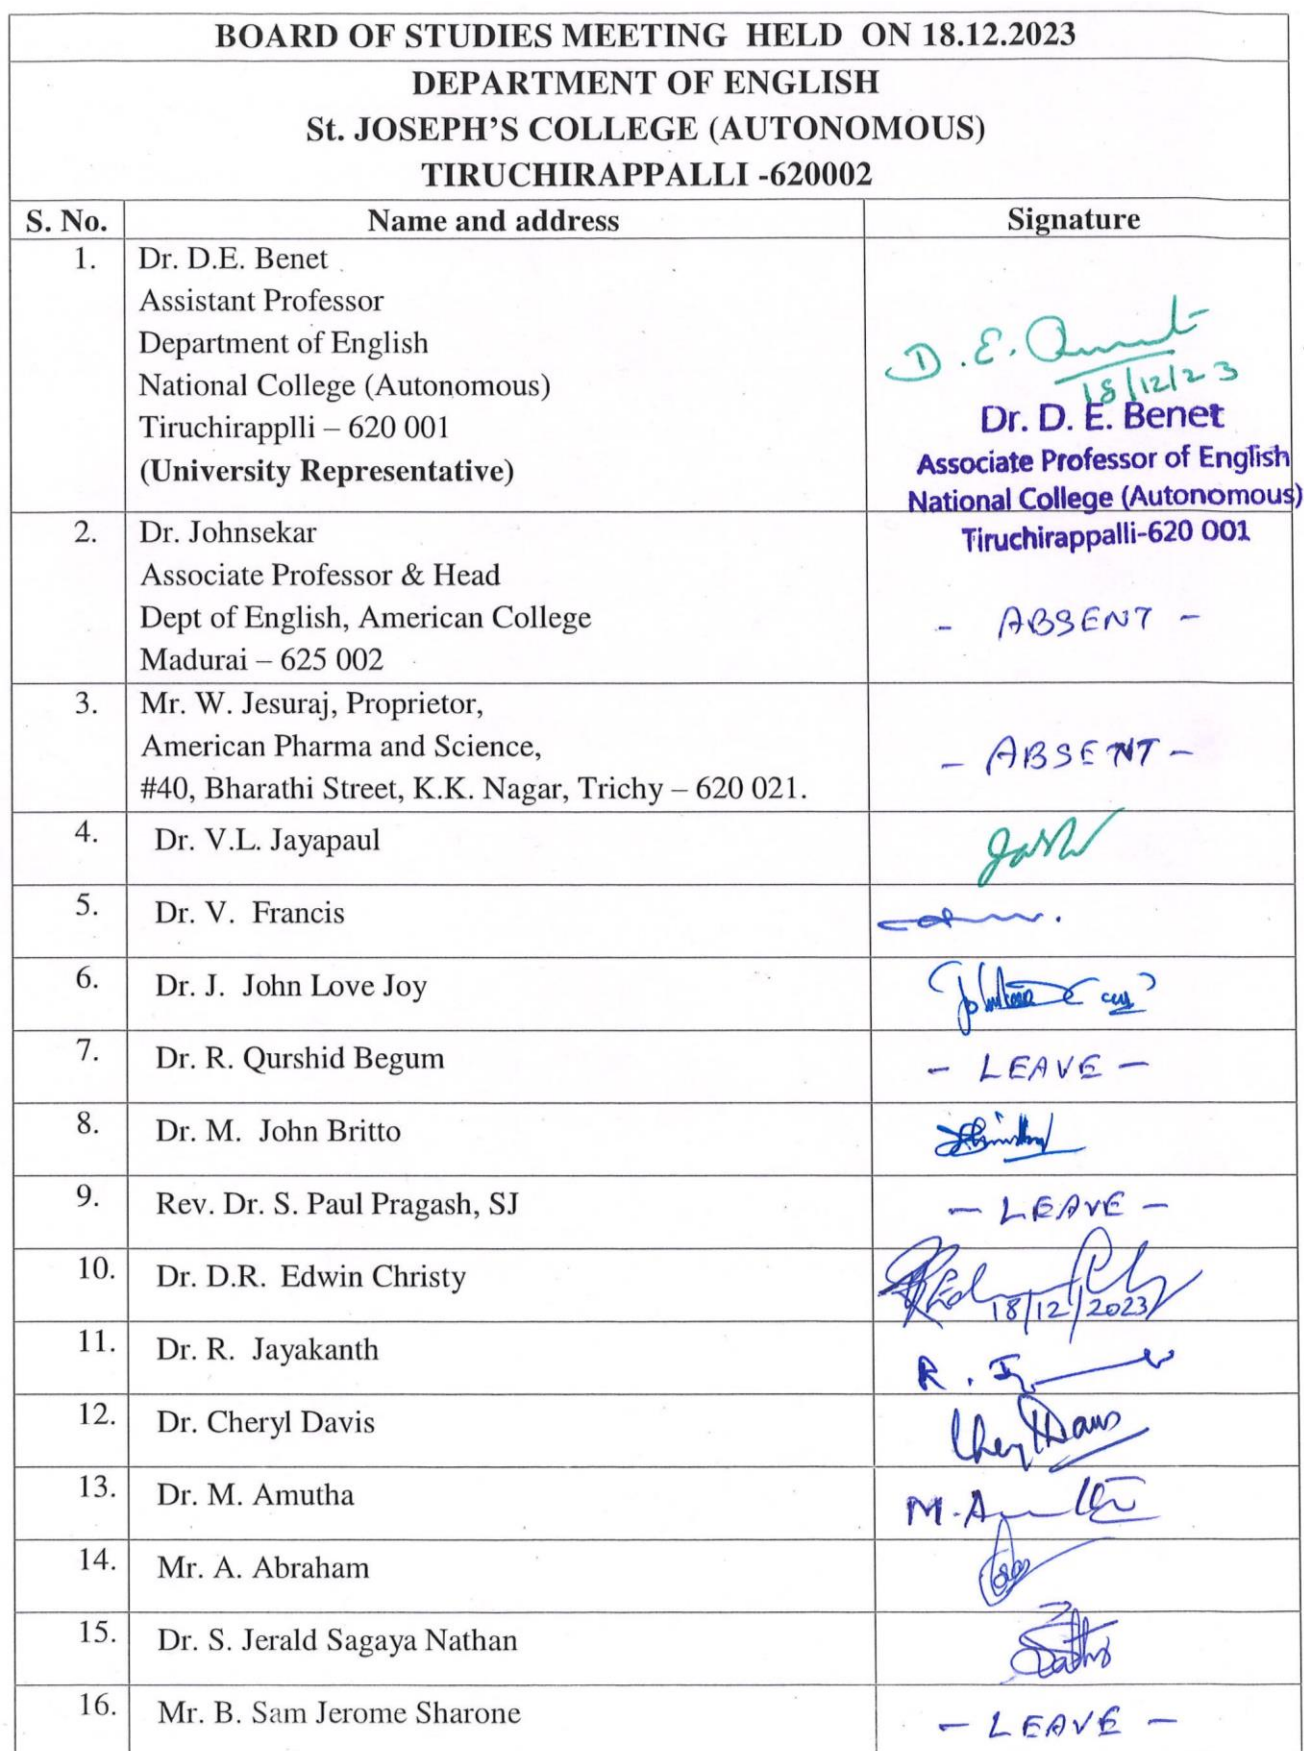 BOARD OF STUDIES MEETING HELD ON 18.12.2023
DEPARTMENT OF ENGLISH
St. JOSEPH'S COLLEGE (AUTONOMOUS)
TIRUCHIRAPPALLI -620002
S. No. Name and address Signature
1. Dr. D.E. Benet
Assistant Professor
Department of English
National College (Autonomous)
Tiruchirapplli – 620 001
(University Representative)
D. E.
18/12/23
Dr. D. E. Benet
Associate Professor of English
National College (Autonomous)
Tiruchirappalli-620 001
2. Dr. Johnsekar
Associate Professor & Head
Dept of English, American College
Madurai – 625 002
- ABSENT -
3. Mr. W. Jesuraj, Proprietor,
American Pharma and Science,
#40, Bharathi Street, K.K. Nagar, Trichy – 620 021.
- ABSENT -
4. Dr. V.L. Jayapaul
5. Dr. V. Francis
6. Dr. J. John Love Joy
7. Dr. R. Qurshid Begum - LEAVE -
8. Dr. M. John Britto
9. Rev. Dr. S. Paul Pragash, SJ - LEAVE -
10. Dr. D.R. Edwin Christy 18/12/2023
11. Dr. R. Jayakanth R.
12. Dr. Cheryl Davis
13. Dr. M. Amutha M.
14. Mr. A. Abraham
15. Dr. S. Jerald Sagaya Nathan
16. Mr. B. Sam Jerome Sharone - LEAVE -